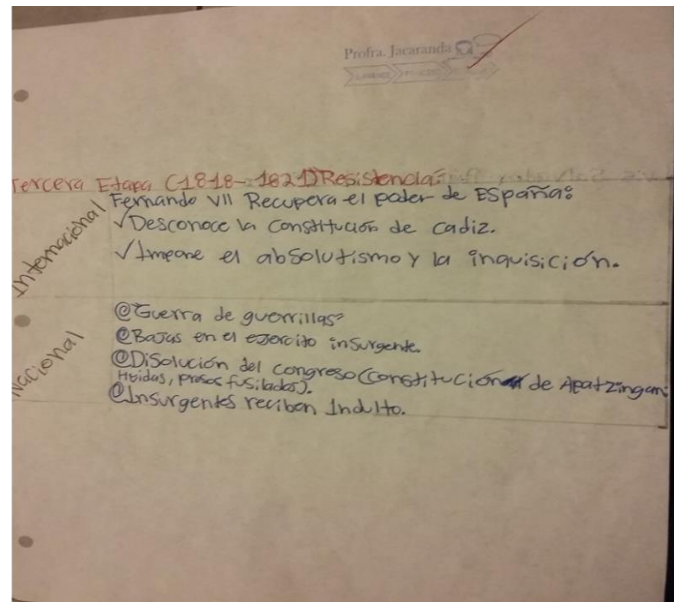 Profra. Jacaranda
Tercera Etapa (1818-1821) Resistencia:
Internacional
Fernando VII Recupera el poder de España:
✓Desconoce la Constitución de cadiz.
✓Impone el absolutismo y la inquisición.
Nacional
@Guerra de guerrillas
@Bajas en el ejercito insurgente.
@Disolución del congreso (constitución de Apatzingan:
Huidos, presos fusilados).
@Insurgentes reciben Indulto.